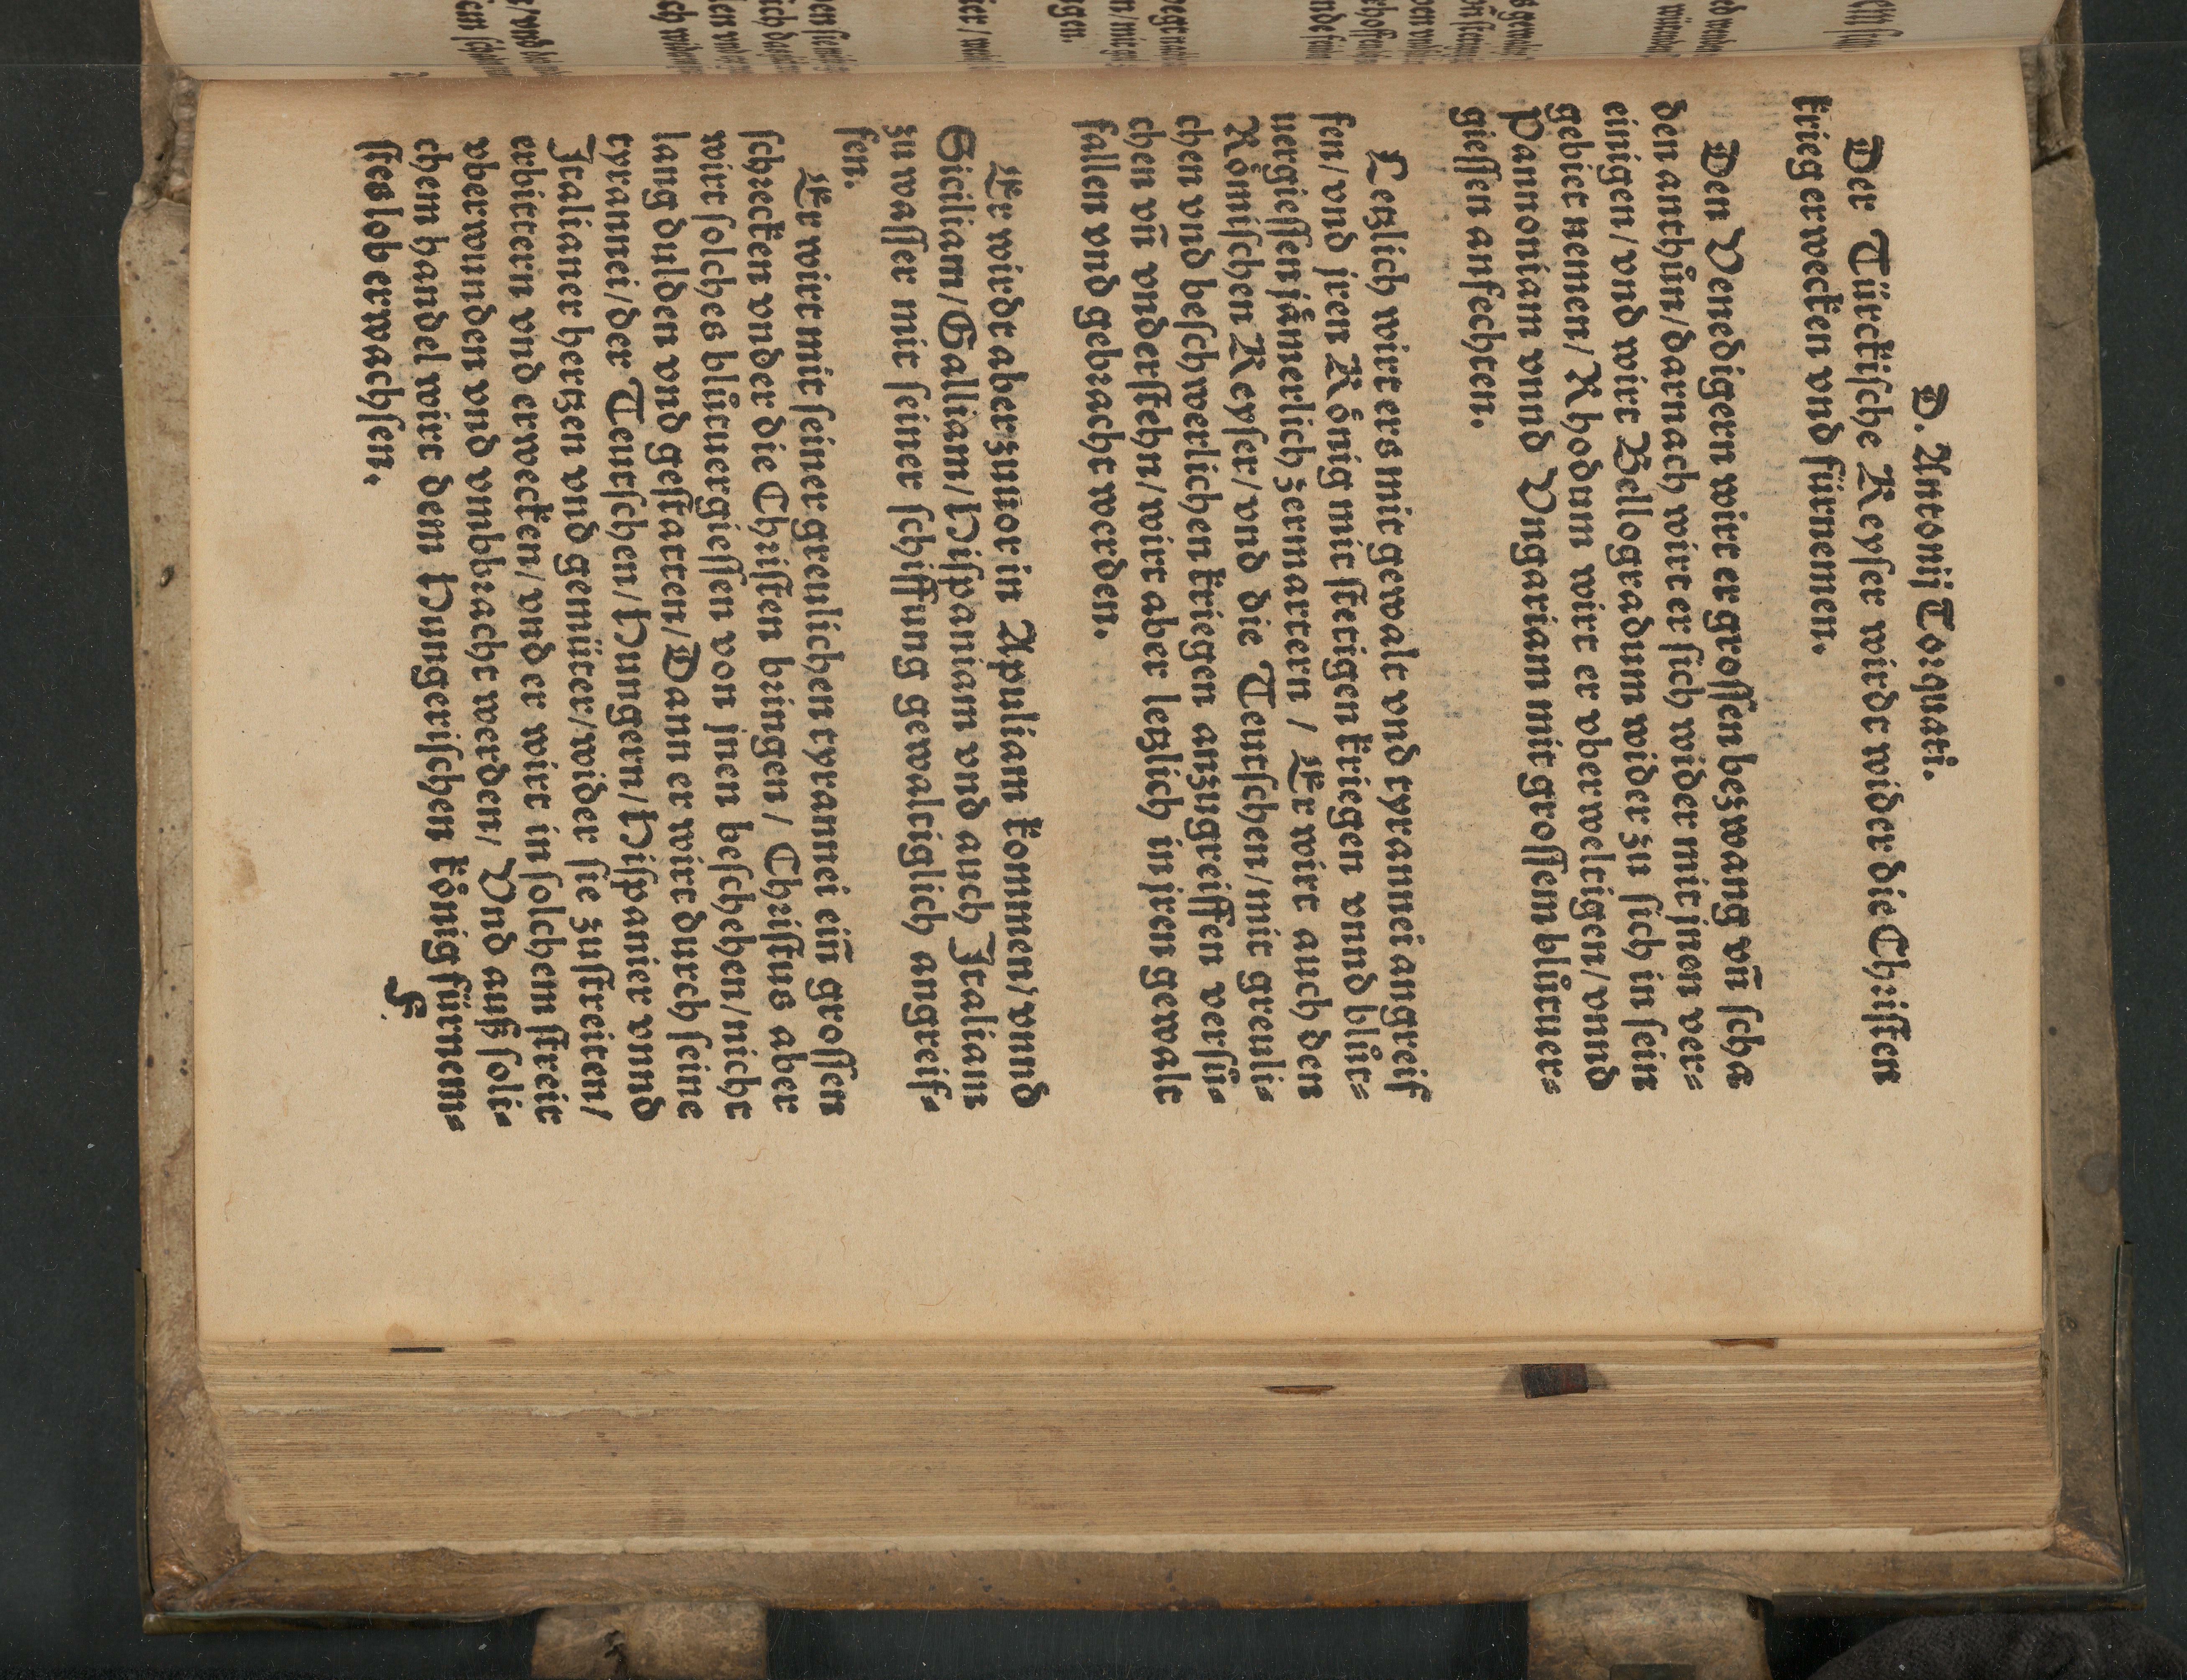 D. Antonij Torquati.
Der Türckische Keyser wirdt wider die Christen
krieg erwecken vnd fürnemen.
Den Venedigern wirt er grossen bezwang vñ scha
den anthůn/darnach wirt er sich wider mit jnen ver⸗
einigen/vnd wirt Bellogradum wider zu sich in sein
gebiet nemen/Rhodum wirt er vberweltigen/vnnd
Pannoniam vnnd Vngariam mit grossen blůtuer⸗
giessen anfechten.
Letzlich wirt ers mit gewalt vnd tyrannei angreif
fen/vnd jren Kőnig mit stetigen kriegen vnnd blůt⸗
uergiessen jåmerlich zermartern / Er wirt auch den
Rőmischen Keyser/vnd die Teutschen/mit greuli⸗
chen vnd beschwerlichen kriegen anzugreiffen versů⸗
chen vñ vnderstehn/wirt aber letzlich in jren gewalt
fallen vnd gebracht werden.
Er wirdt aber zuuor in Apuliam kommen/vnnd
Siciliam/Galliam/Hispaniam vnd auch Italiam
zu wasser mit seiner schiffung gewaltiglich angreif⸗
fen.
Er wirt mit seiner greulichen tyrannei eiñ grossen
schrecken vnder die Christen bringen / Christus aber
wirt solches blůtuergiessen von jnen beschehen/nicht
lang dulden vnd gestatten/Dann er wirt durch seine
tyrannei/der Teutschen/Hungern/Hispanier vnnd
Italianer hertzen vnd gemüter/wider sie zustreiten/
erbittern vnd erwecken/vnd er wirt in solchem streit
vberwunden vnd vmbbracht werden/ Vnd auß soli⸗
chem handel wirt dem Hungerischen kőnig fürnem⸗
stes lob erwachsen.